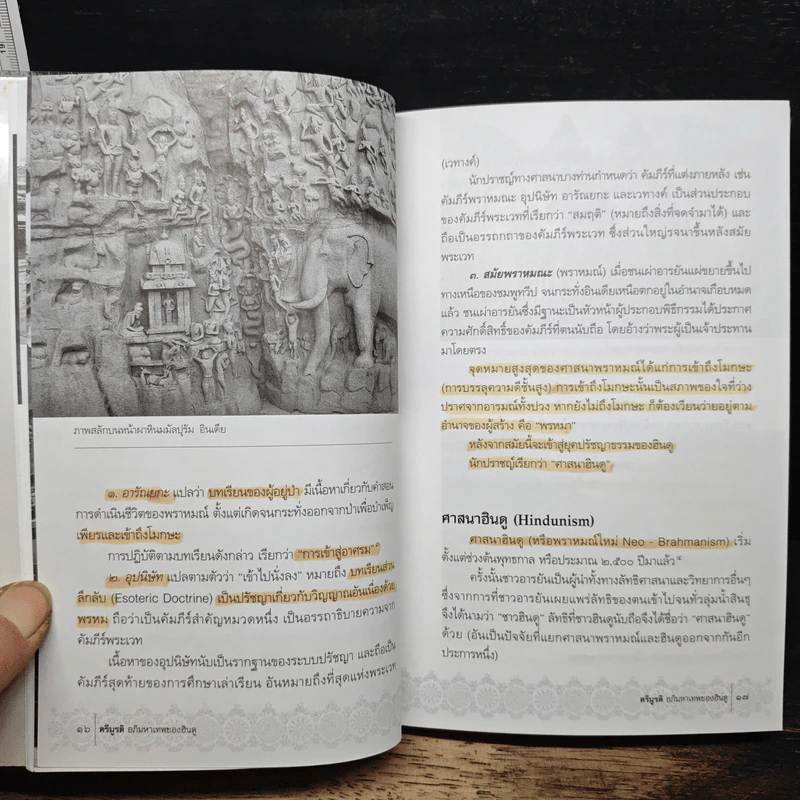 ภาพสลักบนหน้าผาหินมมัลปุรัม อินเดีย
๑. อารัณยกะ แปลว่า บทเรียนของผู้อยู่ป่า มีเนื้อหาเกี่ยวกับคำสอน
การดำเนินชีวิตของพราหมณ์ ตั้งแต่เกิดจนกระทั่งออกจากป่าเพื่อบำเพ็ญ
เพียรและเข้าถึงโมกษะ
การปฏิบัติตามบทเรียนดังกล่าว เรียกว่า "การเข้าสู่อาศรม"
๒. อุปนิษัท แปลตามตัวว่า "เข้าไปนั่งลง" หมายถึง บทเรียนส่วน
ลึกลับ (Esoteric Doctrine) เป็นปรัชญาเกี่ยวกับวิญญาณอันเนื่องด้วย
พรหม ถือว่าเป็นคัมภีร์สำคัญหมวดหนึ่ง เป็นอรรถาธิบายความจาก
คัมภีร์พระเวท
เนื้อหาของอุปนิษัทนับเป็นรากฐานของระบบปรัชญา และถือเป็น
คัมภีร์สุดท้ายของการศึกษาเล่าเรียน อันหมายถึงที่สุดแห่งพระเวท
๑๖ ตรีมูรติ อภิมหาเทพของฮินดู
(เวทางค์)
นักปราชญ์ทางศาสนาบางท่านกำหนดว่า คัมภีร์ที่แต่งภายหลัง เช่น
คัมภีร์พราหมณะ อุปนิษัท อารัณยกะ และเวทางค์ เป็นส่วนประกอบ
ของคัมภีร์พระเวทที่เรียกว่า "สมฤติ" (หมายถึงสิ่งที่จดจำมาได้) และ
ถือเป็นอรรถกถาของคัมภีร์พระเวท ซึ่งส่วนใหญ่รจนาขึ้นหลังสมัย
พระเวท
๓. สมัยพราหมณะ (พราหมณ์) เมื่อชนเผ่าอารยันแผ่ขยายขึ้นไป
ทางเหนือของชมพูทวีป จนกระทั่งอินเดียเหนือตกอยู่ในอำนาจเกือบหมด
แล้ว ชนเผ่าอารยันซึ่งมีฐานะเป็นหัวหน้าผู้ประกอบพิธีกรรมได้ประกาศ
ความศักดิ์สิทธิ์ของคัมภีร์ที่ตนนับถือ โดยอ้างว่าพระผู้เป็นเจ้าประทาน
มาโดยตรง
จุดหมายสูงสุดของศาสนาพราหมณ์ได้แก่การเข้าถึงโมกษะ
(การบรรลุความดีชั้นสูง) การเข้าถึงโมกษะนั้นเป็นสภาพของใจที่ว่าง
ปราศจากอารมณ์ทั้งปวง หากยังไม่ถึงโมกษะ ก็ต้องเวียนว่ายอยู่ตาม
อำนาจของผู้สร้าง คือ "พรหมา"
หลังจากสมัยนี้จะเข้าสู่ยุคปรัชญาธรรมของฮินดู
นักปราชญ์เรียกว่า "ศาสนาฮินดู"
ศาสนาฮินดู (Hindunism)
ศาสนาฮินดู (หรือพราหมณ์ใหม่ Neo - Brahmanism) เริ่ม
ตั้งแต่ช่วงต้นพุทธกาล หรือประมาณ ๒,๕๐๐ ปีมาแล้ว
ครั้งนั้นชาวอารยันเป็นผู้นำทางลัทธิศาสนาและวิทยาการอื่นๆ
ซึ่งจากการที่ชาวอารยันเผยแพร่ลัทธิของตนเข้าไปจนทั่วลุ่มน้ำสินธุ
จึงได้นามว่า "ชาวฮินดู" ลัทธิที่ชาวฮินดูนับถือจึงได้ชื่อว่า "ศาสนาฮินดู"
ด้วย (อันเป็นปัจจัยที่แยกศาสนาพราหมณ์และฮินดูออกจากกันอีก
ประการหนึ่ง)
ตรีมูรติ อภิมหาเทพของฮินดู ๑๗